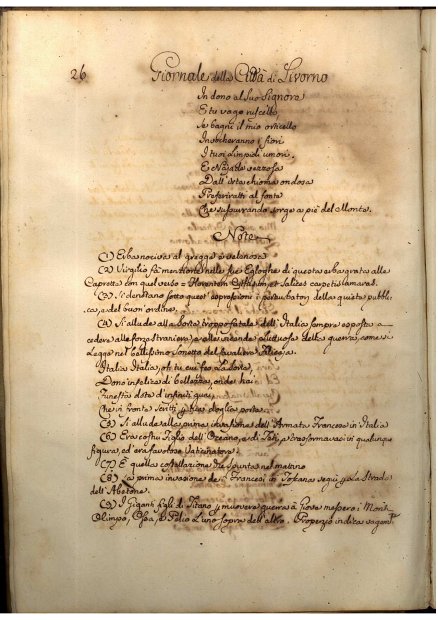 26 Giornale della Città di Livorno
In dono al suo Signore
E tu vago ruscello,
Se bagni il mio orticello
I fiori
I tuoi limpidi umori,
E Najade vezzosa
Dall' irta chioma ondosa
al fonte
Che susurrando sorge a piè del Monte.
Note
(1) Erba nociva al gregge e velenosa
(2) Virgilio fà menzione nelle sue Egloghe di questa erba grata alle
Caprette con quel verso = Florentem Cytisum, et Salices carpetis amaras.
(3) Si denotano sotto quest' espressioni i perturbatori della quiete pubbli-
ca, e del buon ordine.
(4) Si allude alla sorte troppo fatale dell' Italia sempre esposta a
cedere alla forza straniera, e alle vicende della guerra, come si
Legge nel bellissimo Sonetto del Cavaliere Filicaja.
Italia Italia, o tu, cui feo la Sorte,
Dono infelice di bellezza, onde hai
Funesta dote d'infiniti guai,
Che in fronte scritti per gran doglia porte.
(5) Si allude alla prima invasione dell' Armata Francese in Italia
(6) Era costui Figlio dell' Oceano, e di Teti, e trasformavasi in qualunque
figura, ed era famoso Vaticinatore
(7) È quella costellazione che spunta nel mattino
(8) La prima invasione de' Francesi in Toscana seguì p. la Strada
dell' Abetone.
(9) I Giganti figli di Titano p. muovere guerra a Giove messero i Monti
Olimpo, Ossa, e Pelio l'uno sopra dell' altro. Properzio indica